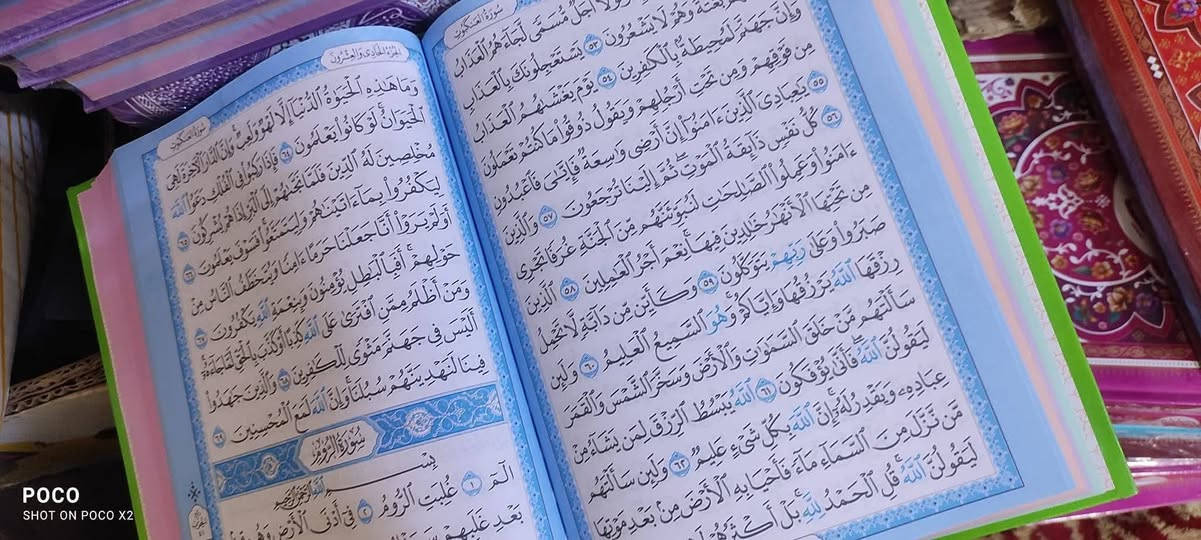 سُورَةُ العَنكَبُوتِ
وَلَوْلَا أَجَلٌ مُّسَمًّى لَّجَاءَهُمُ الْعَذَابُ
بَغْتَةً وَهُمْ لَا يَشْعُرُونَ ٥٣ يَسْتَعْجِلُونَكَ بِالْعَذَابِ
وَإِنَّ جَهَنَّمَ لَمُحِيطَةٌ بِالْكَافِرِينَ ٥٤ يَوْمَ يَغْشَاهُمُ الْعَذَابُ
مِن فَوْقِهِمْ وَمِن تَحْتِ أَرْجُلِهِمْ وَيَقُولُ ذُوقُوا مَا كُنتُمْ تَعْمَلُونَ
٥٥ يَاعِبَادِيَ الَّذِينَ ءَامَنُوا إِنَّ أَرْضِي وَاسِعَةٌ فَإِيَّايَ فَاعْبُدُونِ
٥٦ كُلُّ نَفْسٍ ذَائِقَةُ الْمَوْتِ ثُمَّ إِلَيْنَا تُرْجَعُونَ ٥٧ وَالَّذِينَ
ءَامَنُوا وَعَمِلُوا الصَّالِحَاتِ لَنُبَوِّئَنَّهُم مِّنَ الْجَنَّةِ غُرَفًا تَجْرِي
مِن تَحْتِهَا الْأَنْهَارُ خَالِدِينَ فِيهَا نِعْمَ أَجْرُ الْعَامِلِينَ ٥٨ الَّذِينَ
صَبَرُوا وَعَلَى رَبِّهِمْ يَتَوَكَّلُونَ ٥٩ وَكَأَيِّن مِّن دَابَّةٍ لَّا تَحْمِلُ
رِزْقَهَا اللَّهُ يَرْزُقُهَا وَإِيَّاكُمْ وَهُوَ السَّمِيعُ الْعَلِيمُ ٦٠ وَلَئِن
سَأَلْتَهُم مَّنْ خَلَقَ السَّمَاوَاتِ وَالْأَرْضَ وَسَخَّرَ الشَّمْسَ وَالْقَمَرَ
لَيَقُولُنَّ اللَّهُ فَأَنَّى يُؤْفَكُونَ ٦١ اللَّهُ يَبْسُطُ الرِّزْقَ لِمَن يَشَاءُ مِنْ
عِبَادِهِ وَيَقْدِرُ لَهُ إِنَّ اللَّهَ بِكُلِّ شَيْءٍ عَلِيمٌ ٦٢ وَلَئِن سَأَلْتَهُم
مَّن نَّزَّلَ مِنَ السَّمَاءِ مَاءً فَأَحْيَا بِهِ الْأَرْضَ مِن بَعْدِ مَوْتِهَا
لَيَقُولُنَّ اللَّهُ قُلِ الْحَمْدُ لِلَّهِ بَلْ أَكْثَرُهُمْ
الجُزْءُ الحَادِي وَالعِشْرُونَ
سُورَةُ العَنكَبُوتِ
وَمَا هَذِهِ الْحَيَاةُ الدُّنْيَا إِلَّا لَهْوٌ وَلَعِبٌ وَإِنَّ الدَّارَ الْآخِرَةَ لَهِيَ
الْحَيَوَانُ لَوْ كَانُوا يَعْلَمُونَ ٦٤ فَإِذَا رَكِبُوا فِي الْفُلْكِ دَعَوُا اللَّهَ
مُخْلِصِينَ لَهُ الدِّينَ فَلَمَّا نَجَّاهُمْ إِلَى الْبَرِّ إِذَا هُمْ يُشْرِكُونَ ٦٥
لِيَكْفُرُوا بِمَا ءَاتَيْنَاهُمْ وَلِيَتَمَتَّعُوا فَسَوْفَ يَعْلَمُونَ ٦٦
أَوَلَمْ يَرَوْا أَنَّا جَعَلْنَا حَرَمًا ءَامِنًا وَيُتَخَطَّفُ النَّاسُ مِنْ
حَوْلِهِمْ أَفَبِالْبَاطِلِ يُؤْمِنُونَ وَبِنِعْمَةِ اللَّهِ يَكْفُرُونَ ٦٧
وَمَنْ أَظْلَمُ مِمَّنِ افْتَرَى عَلَى اللَّهِ كَذِبًا أَوْ كَذَّبَ بِالْحَقِّ لَمَّا جَاءَهُ
أَلَيْسَ فِي جَهَنَّمَ مَثْوًى لِّلْكَافِرِينَ ٦٨ وَالَّذِينَ جَاهَدُوا
فِينَا لَنَهْدِيَنَّهُمْ سُبُلَنَا وَإِنَّ اللَّهَ لَمَعَ الْمُحْسِنِينَ ٦٩
سُورَةُ الرُّومِ
بِسْمِ اللَّهِ الرَّحْمَنِ الرَّحِيمِ
الٓمٓ ١ غُلِبَتِ الرُّومُ ٢ فِي أَدْنَى الْأَرْضِ وَهُم
بَعْدِ غَلَبِهِمْ
POCO
SHOT ON POCO X2